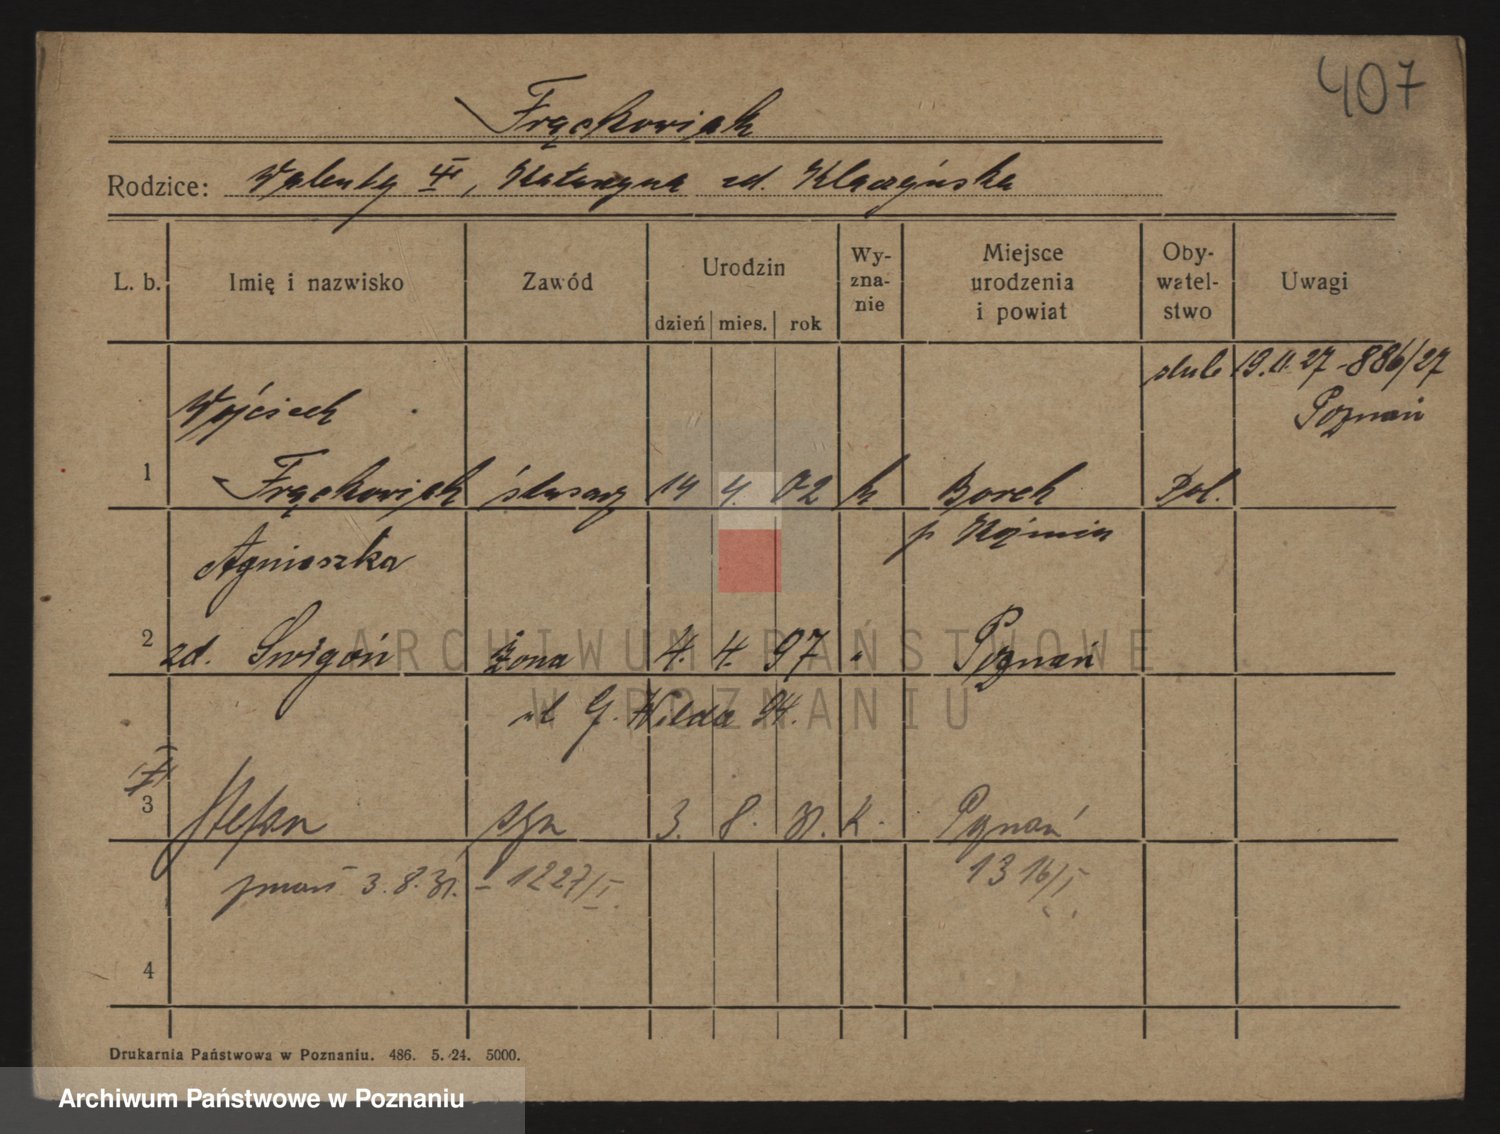 407
Frąckowiak
Rodzice: Walenty III, Katarzyna zd. Klaczyńska
L. b. Imię i nazwisko Zawód Urodzin dzień mies. rok Wy-zna-nie Miejsce urodzenia i powiat Oby-watel-stwo Uwagi
ślub 19.II.27 - 886/27
Poznań
Wojciech
1 Frąckowiak ślusarz 14 4. 02 k Borek Pol.
p Koźmin
Agnieszka
2 zd. Swigoń żona 4. 4. 97 " Poznań
ul G. Wilda
3 Stefan syn 3. 8. 31. k. Poznań
zmarł 3.8.31. - 1227/I. 1316/I.
4
Drukarnia Państwowa w Poznaniu. 486. 5. 24. 5000.
ARCHIWUM PAŃSTWOWE
W POZNANIU
Archiwum Państwowe w Poznaniu